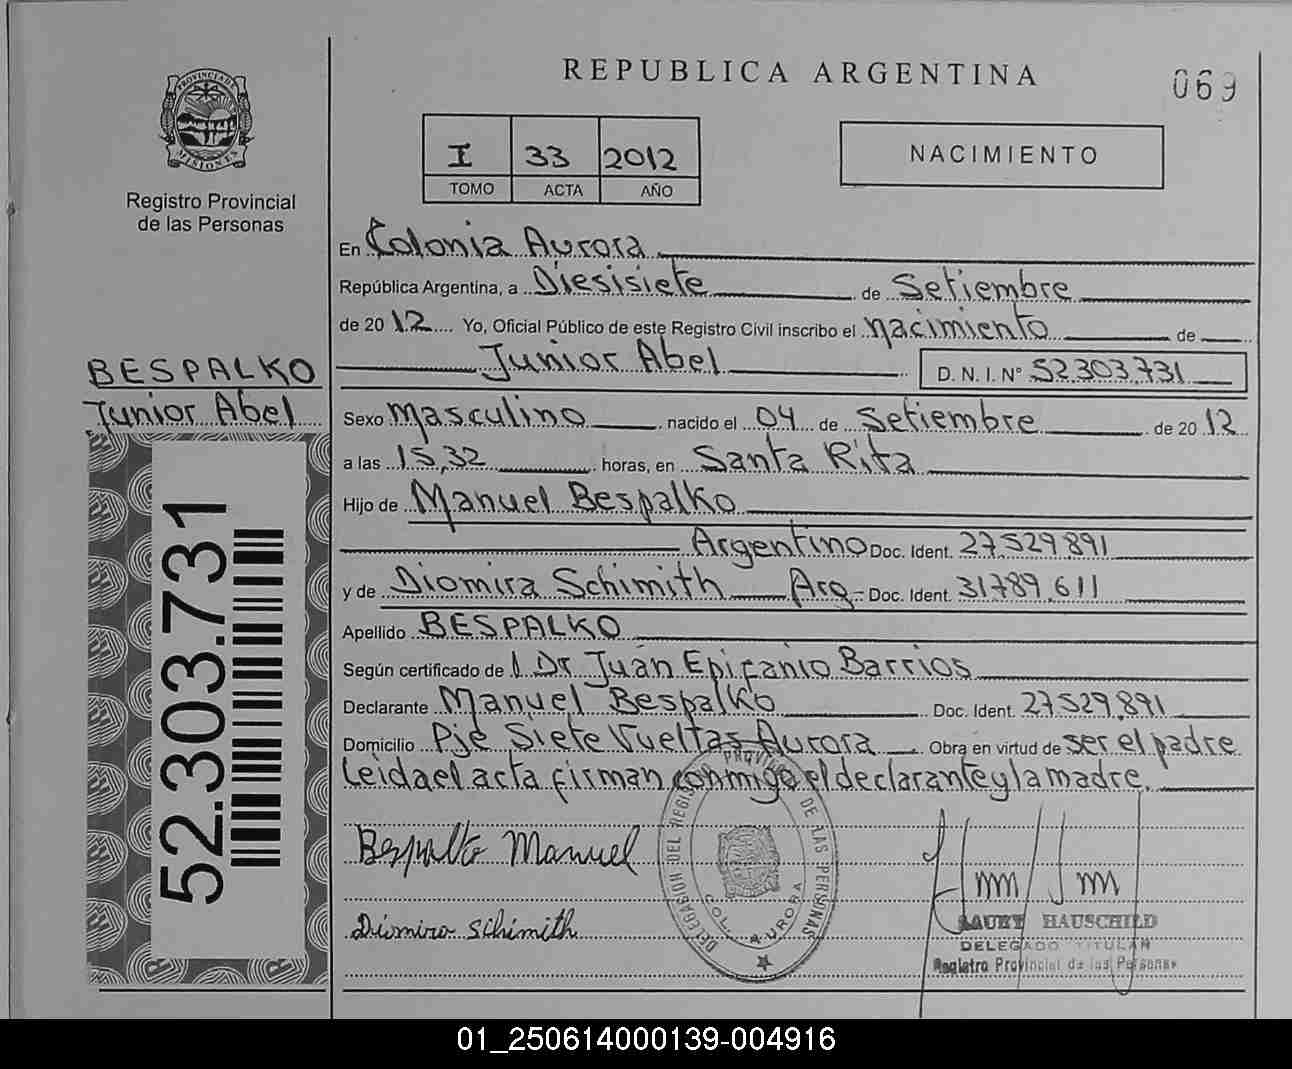 REPUBLICA ARGENTINA
069
PROVINCIA DE MISIONES
Registro Provincial
de las Personas
I 33 2012
TOMO ACTA AÑO
NACIMIENTO
En Colonia Aurora
República Argentina, a Diesisiete de Setiembre
de 2012 Yo, Oficial Público de este Registro Civil inscribo el nacimiento de
Junior Abel D. N. I. N° 52.303.731
BESPALKO
Junior Abel
Sexo Masculino nacido el 04 de Setiembre de 2012
a las 15,32 horas, en Santa Rita
Hijo de Manuel Bespalko
Argentino Doc. Ident. 27.529.891
y de Diomira Schimith Arg- Doc. Ident. 31.789.611
Apellido BESPALKO
Según certificado de Dr Juan Epifanio Barrios
Declarante Manuel Bespalko Doc. Ident. 27.529.891
Domicilio Pje Siete Vueltas Aurora Obra en virtud de ser el padre
Leida el acta firman conmigo el declarante y la madre.
52.303.731
Bespalko Manuel
Diomira Schimith
DELEGACION DEL REGISTRO PROVINCIAL DE LAS PERSONAS
COL. AURORA
LAURY HAUSCHILD
DELEGADO TITULAR
Registro Provincial de las Personas
01_250614000139-004916